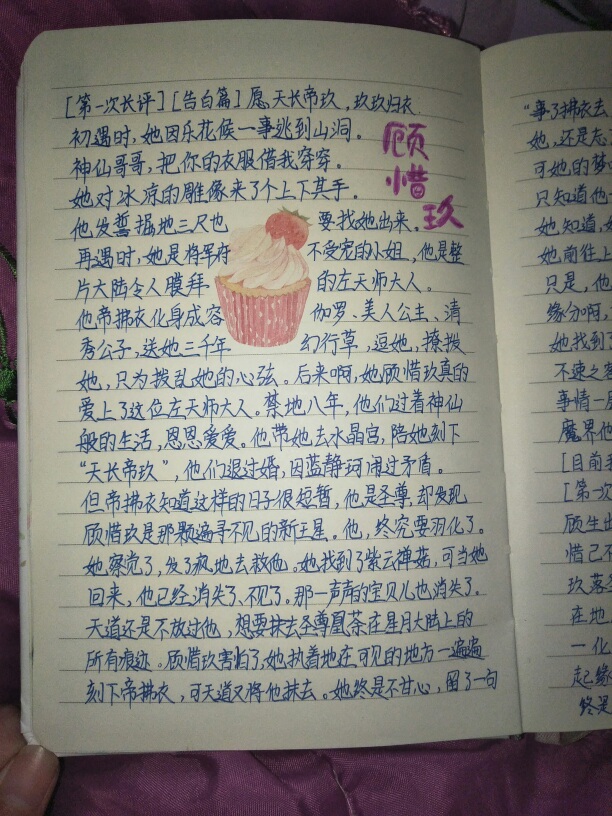 [第一次长评][告白篇]愿天长帝玖，玖玖归衣
初遇时，她因乐花候一事逃到山洞。
神仙哥哥，把你的衣服借我穿穿。
她对冰凉的雕像来了个上下其手。
他发誓掘地三尺也要找她出来。
再遇时，她是将军府不受宠的小姐，他是整
片大陆令人膜拜的左天师大人。
他帝拂衣化身成容伽罗、美人公主、清
秀公子，送她三千年幻行草，逗她，撩拨
她，只为拨乱她的心弦。后来啊，她顾惜玖真的
爱上了这位左天师大人。禁地八年，他们过着神仙
般的生活，恩恩爱爱。他带她去水晶宫，陪她刻下
“天长帝玖”，他们退过婚，因蓝静珂闹过矛盾。
但帝拂衣知道这样的日子很短暂，他是圣尊，却发现
顾惜玖是那颗遍寻不见的新王星。他，终究要羽化了。
她察觉了，发了疯地去救他。她找到了紫云禅菇，可当她
回来，他已经消失了、不见了。那一声声的宝贝儿也消失了。
天道还是不放过他，想要抹去圣尊凰荼在星月大陆上的
所有痕迹。顾惜玖害怕了，她执着地在可见的地方一遍遍
刻下帝拂衣，可天道又将他抹去。她终是不甘心，留了一句
顾
惜
玖
“事了拂衣去
她，还是忘
可她的梦
只知道他
她知道，她
她前往上
只是，他
缘分啊，
她找到了
不速之客
事情一
魔界他
[目前
[第一次
顾生
惜己不
玖落
在地
一化
起缘
终是